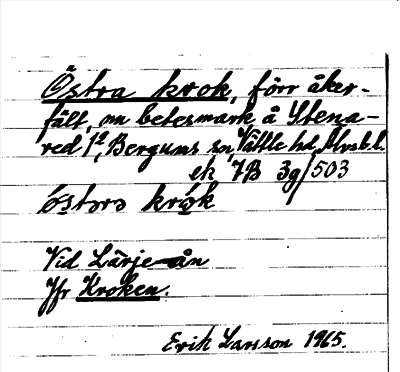 Östra krok, förr åker-
fält, nu betesmark å Stena-
red 1², Bergums sn, Vättle hd, Älvsb. l.
ek 7B 3g/503
östɷrɷ krɷ́k
Vid Lärje-ån
Jfr Kroken.
Erik Larsson 1965.